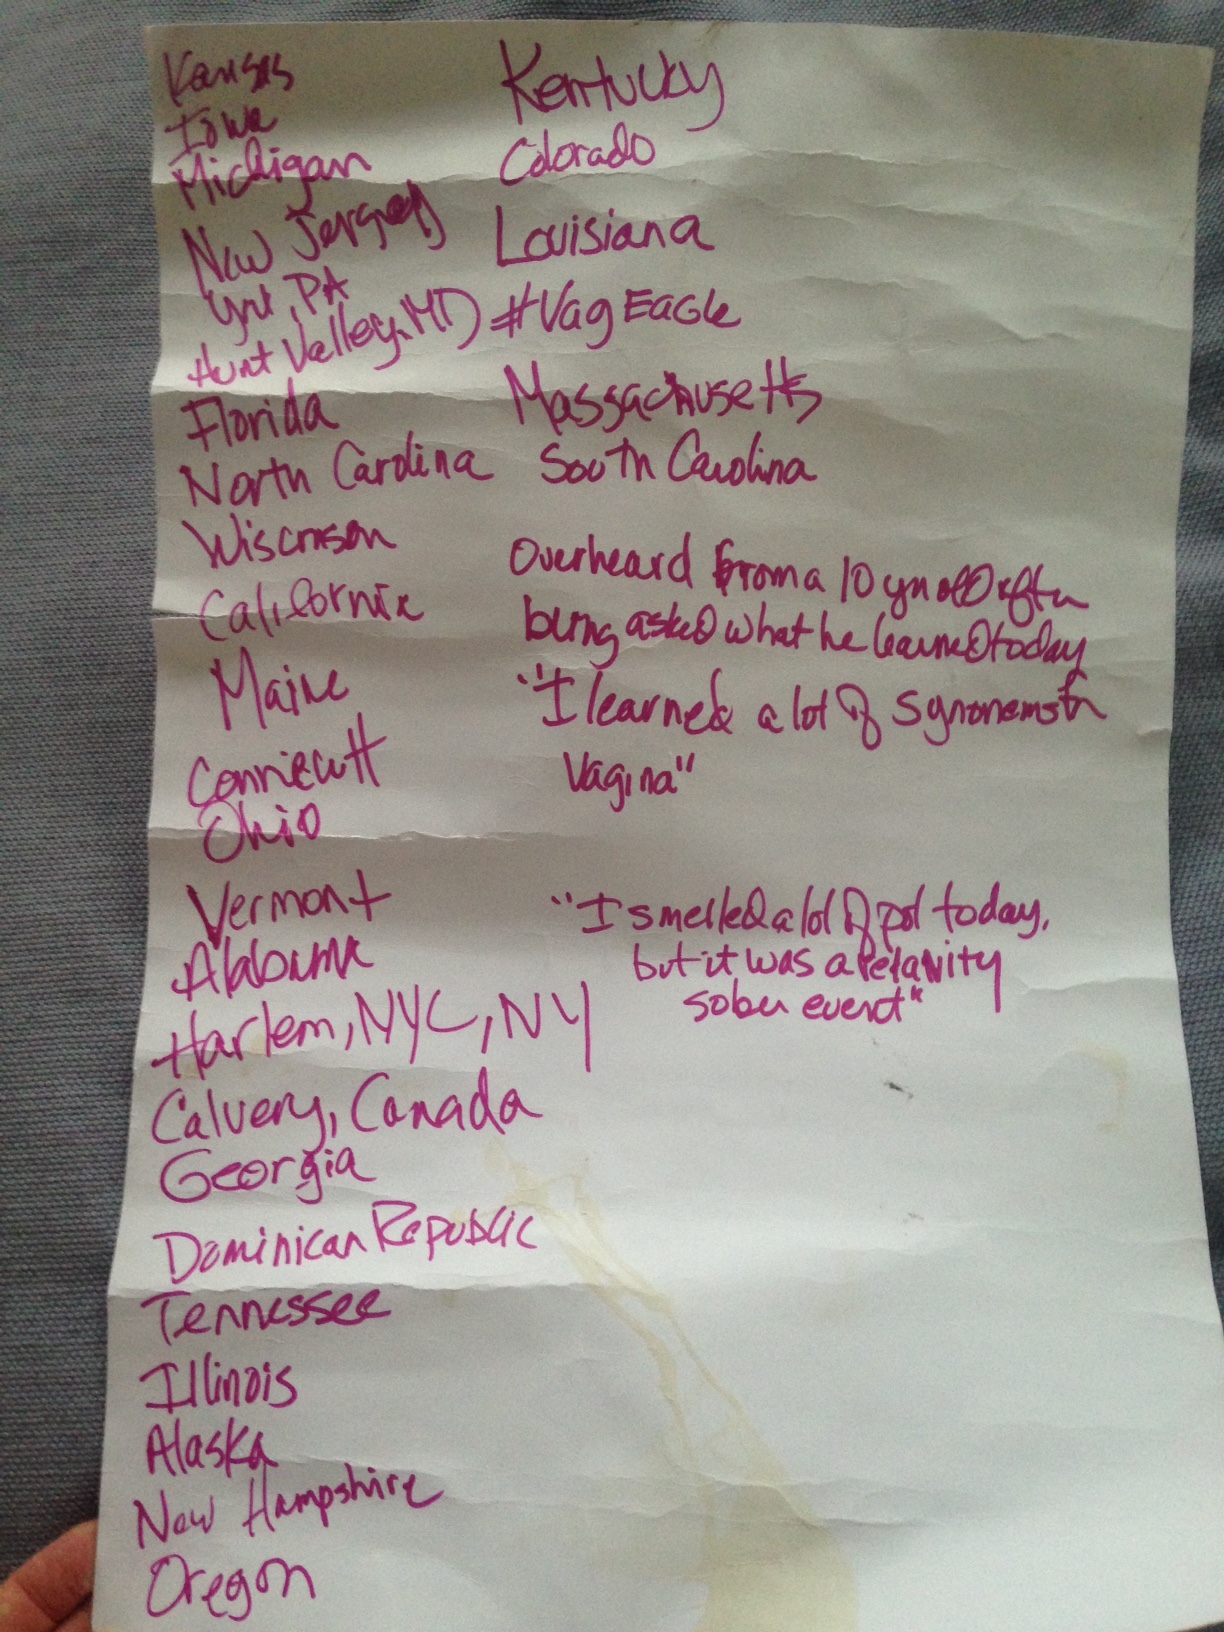 Kansas
Iowa
Michigan
New Jersey
York, PA
Hunt Valley, MD
Florida
North Carolina
Wisconson
California
Maine
Conniecutt
Ohio
Vermont
Alabama
Harlem, NYC, NY
Calvery, Canada
Georgia
Dominican Republic
Tennessee
Illinois
Alaska
New Hampshire
Oregon
Kentucky
Colorado
Louisiana
#VagEagle
Massachusetts
South Carolina
Overheard from a 10 yr old after
being asked what he learned today
"I learned a lot of synonems for
Vagina"
"I smelled a lot of pot today,
but it was a relativity
sober event"